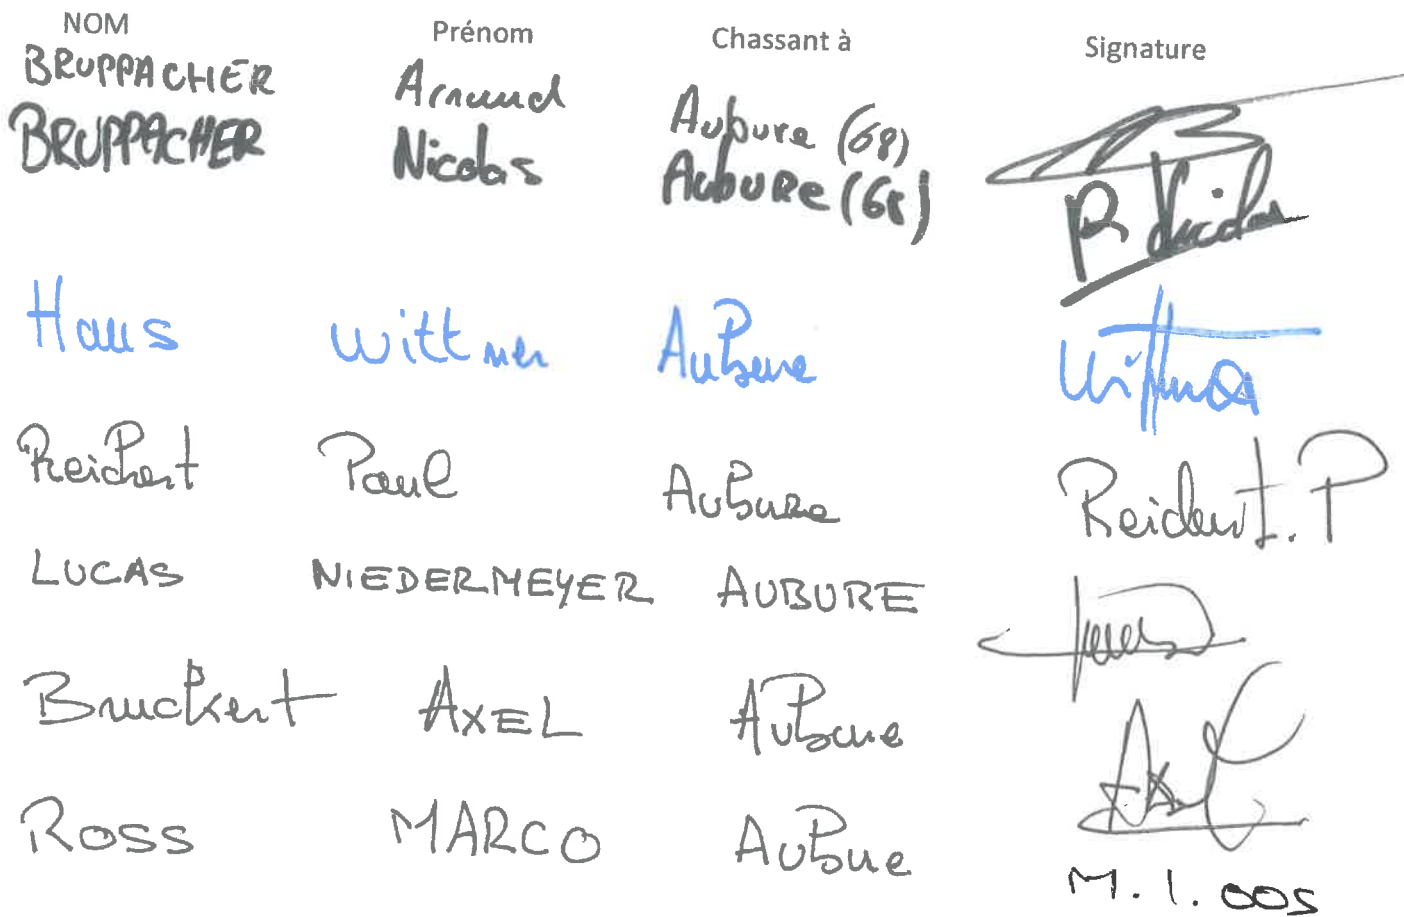 NOM Prénom Chassant à Signature
BRUPPACHER Arnaud Aubure (68)
BRUPPACHER Nicolas Aubure (68) B Nicolas
Haus Wittmer Aubure Wittmer
Reichert Paul Aubure Reichert. P
LUCAS NIEDERMEYER AUBURE
Bruckert AXEL Aubure Axel
Ross MARCO Aubure
M. I. OOS